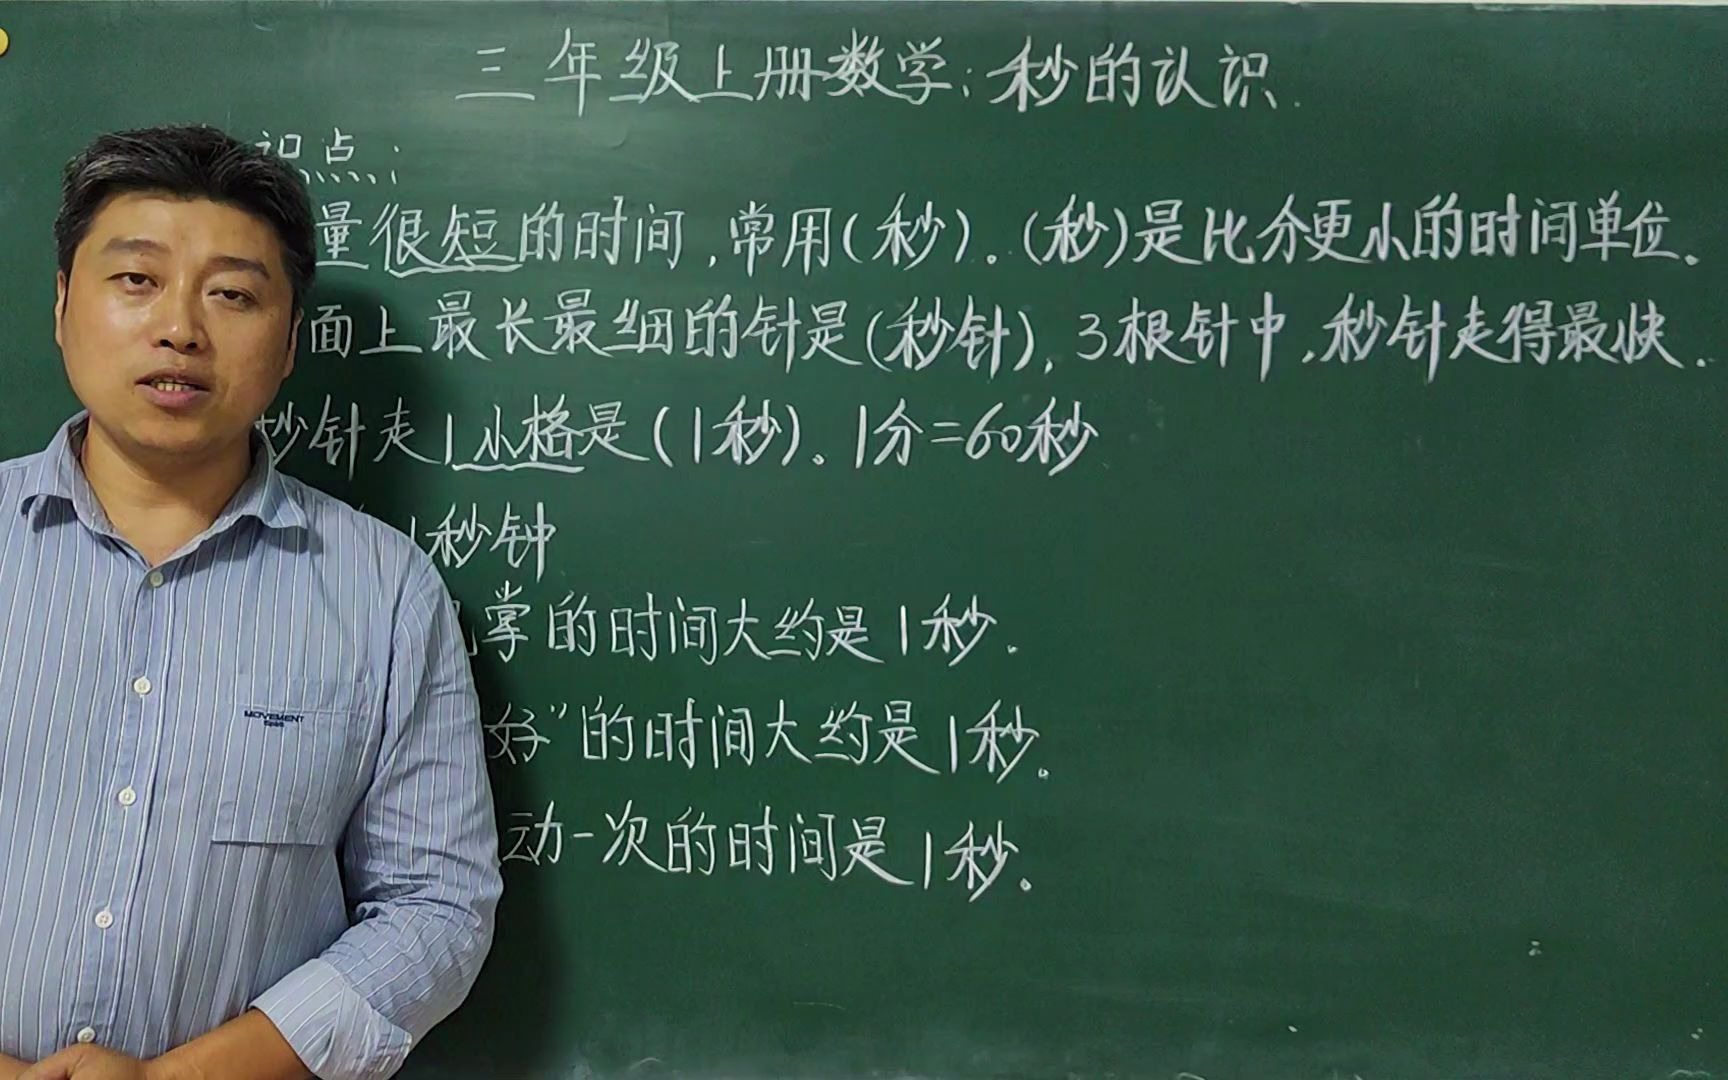 三年级上册数学:秒的认识.
识点:
量很短的时间,常用(秒)。(秒)是比分更小的时间单位。
面上最长最细的针是(秒针),3根针中,秒针走得最快.
秒针走1小格是(1秒)。1分=60秒
1秒钟
掌的时间大约是1秒.
好"的时间大约是1秒.
动一次的时间是1秒.
MOVEMENT